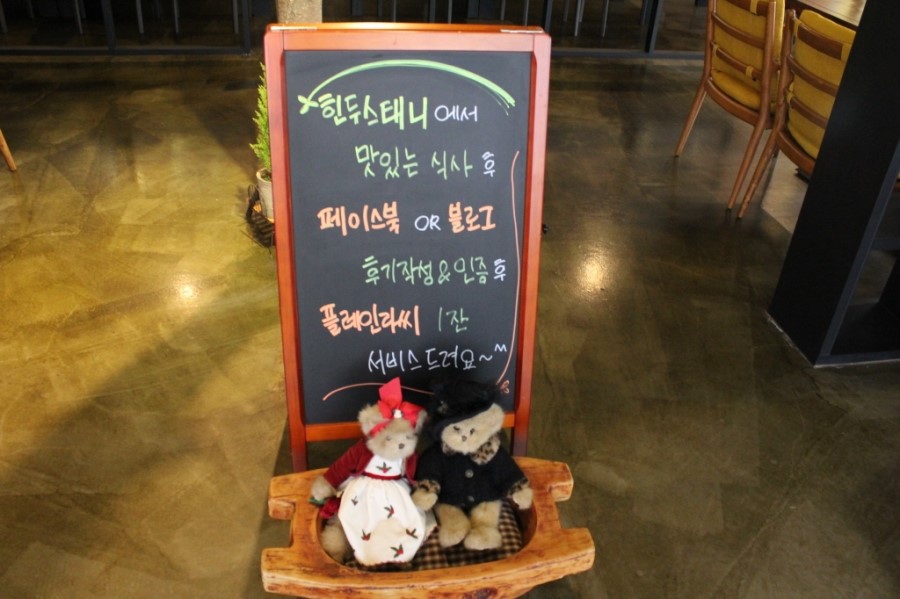 힌두스태니에서
맛있는 식사 후
페이스북 OR 블로그
후기작성&인증후
플레인라씨 1잔
서비스드려요~^^